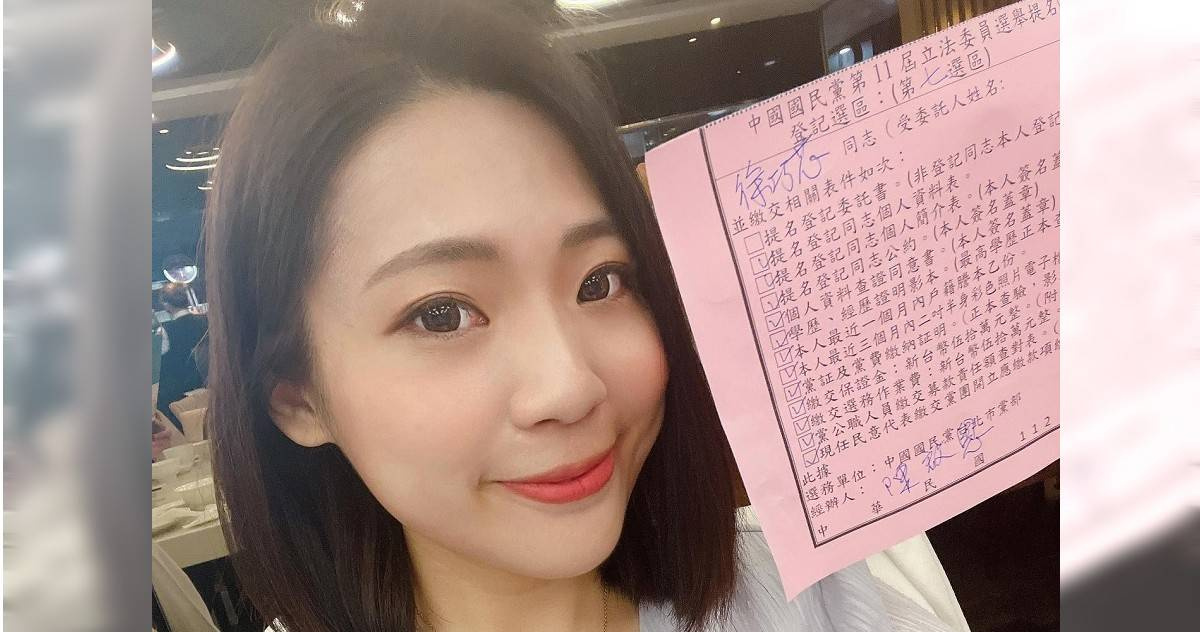 中國國民黨第11屆立法委員選舉提名
登記選區：(第七選區)
徐巧芯 同志（受委託人姓名:
並繳交相關表件如次：
提名登記委託書。(非登記同志本人登記
提名登記同志個人資料表。
提名登記同志個人簡介表。(本人簽名蓋
提名登記同志公約。(本人簽名蓋章)
個人資料查證同意書。(本人簽名蓋章)
學歷、經歷證明影本。(最高學歷正本查
本人最近一個月內戶籍謄本乙份。
本人最近三個月內二吋半身彩色照片電子檔
黨証及黨費繳納証明。(正本查驗，影
繳交保證金：新台幣伍拾萬元整。(附
繳交選務作業費：新台幣伍拾萬元整。
黨公職人員繳交募款責任額查對表。(
現任民意代表繳交黨團開立應繳款項
此據
選務單位：中國國民黨 北市黨部
經辦人：
中 華 民 國 112